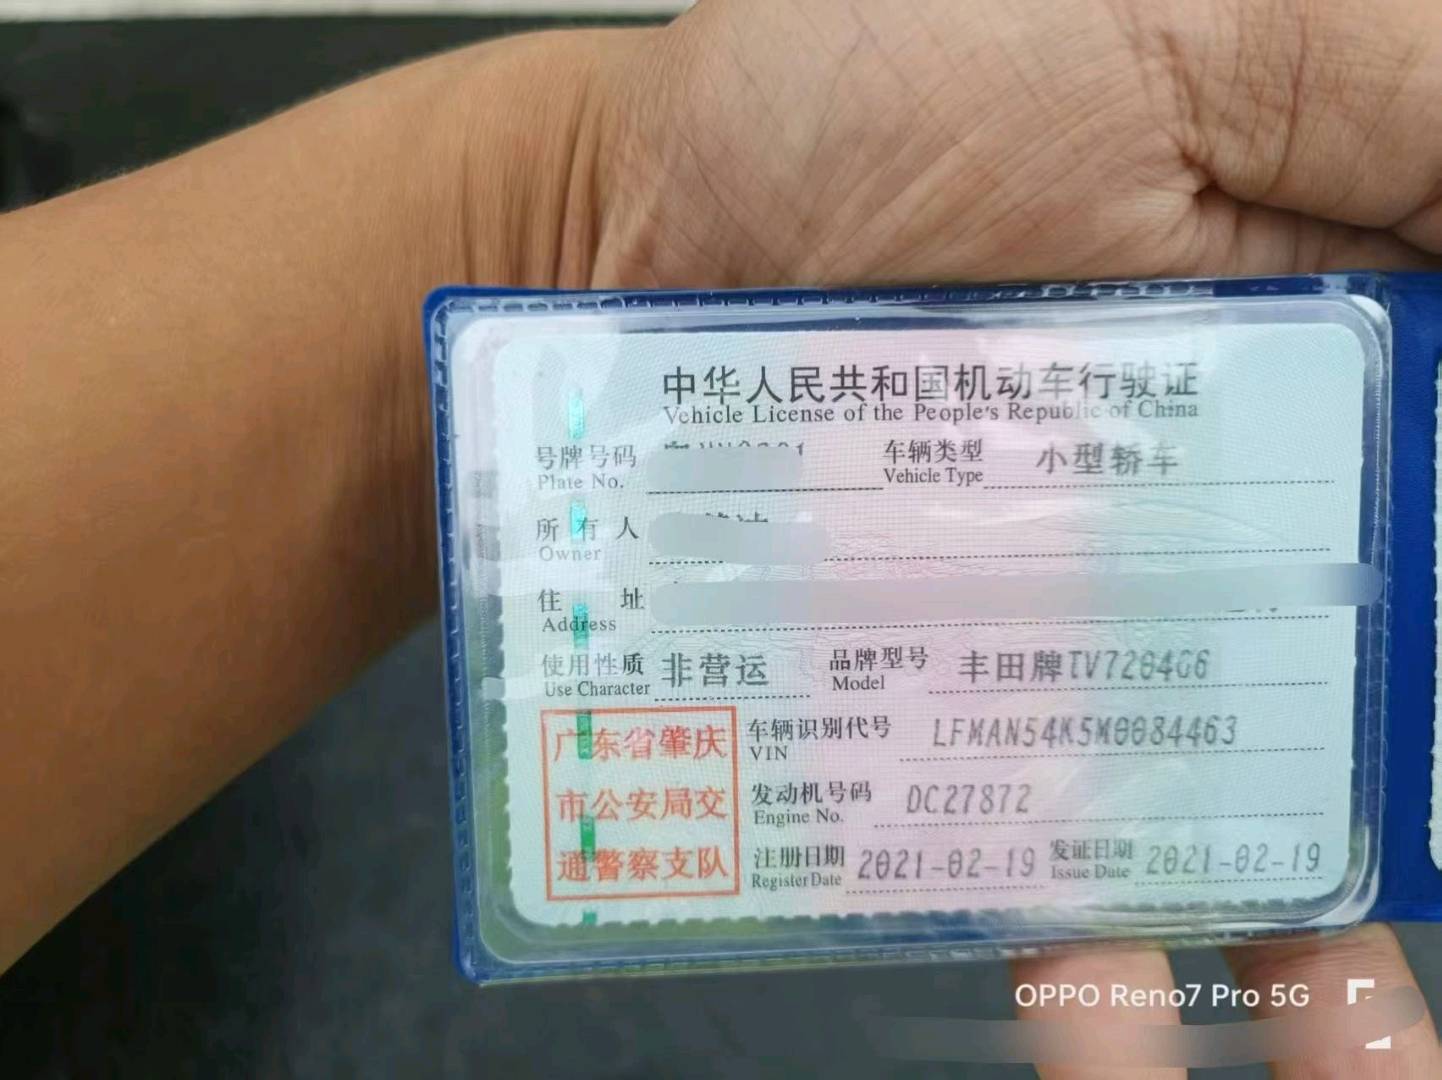 中华人民共和国机动车行驶证
Vehicle License of the People's Republic of China
号牌号码 车辆类型 小型轿车
Plate No. Vehicle Type
所有人
Owner
住址
Address
使用性质 非营运 品牌型号 丰田牌TV7204G6
Use Character Model
广东省肇庆
市公安局交
通警察支队
车辆识别代号 LFMAN54K5M0084463
VIN
发动机号码 DC27872
Engine No.
注册日期 2021-02-19 发证日期 2021-02-19
Register Date Issue Date
OPPO Reno7 Pro 5G